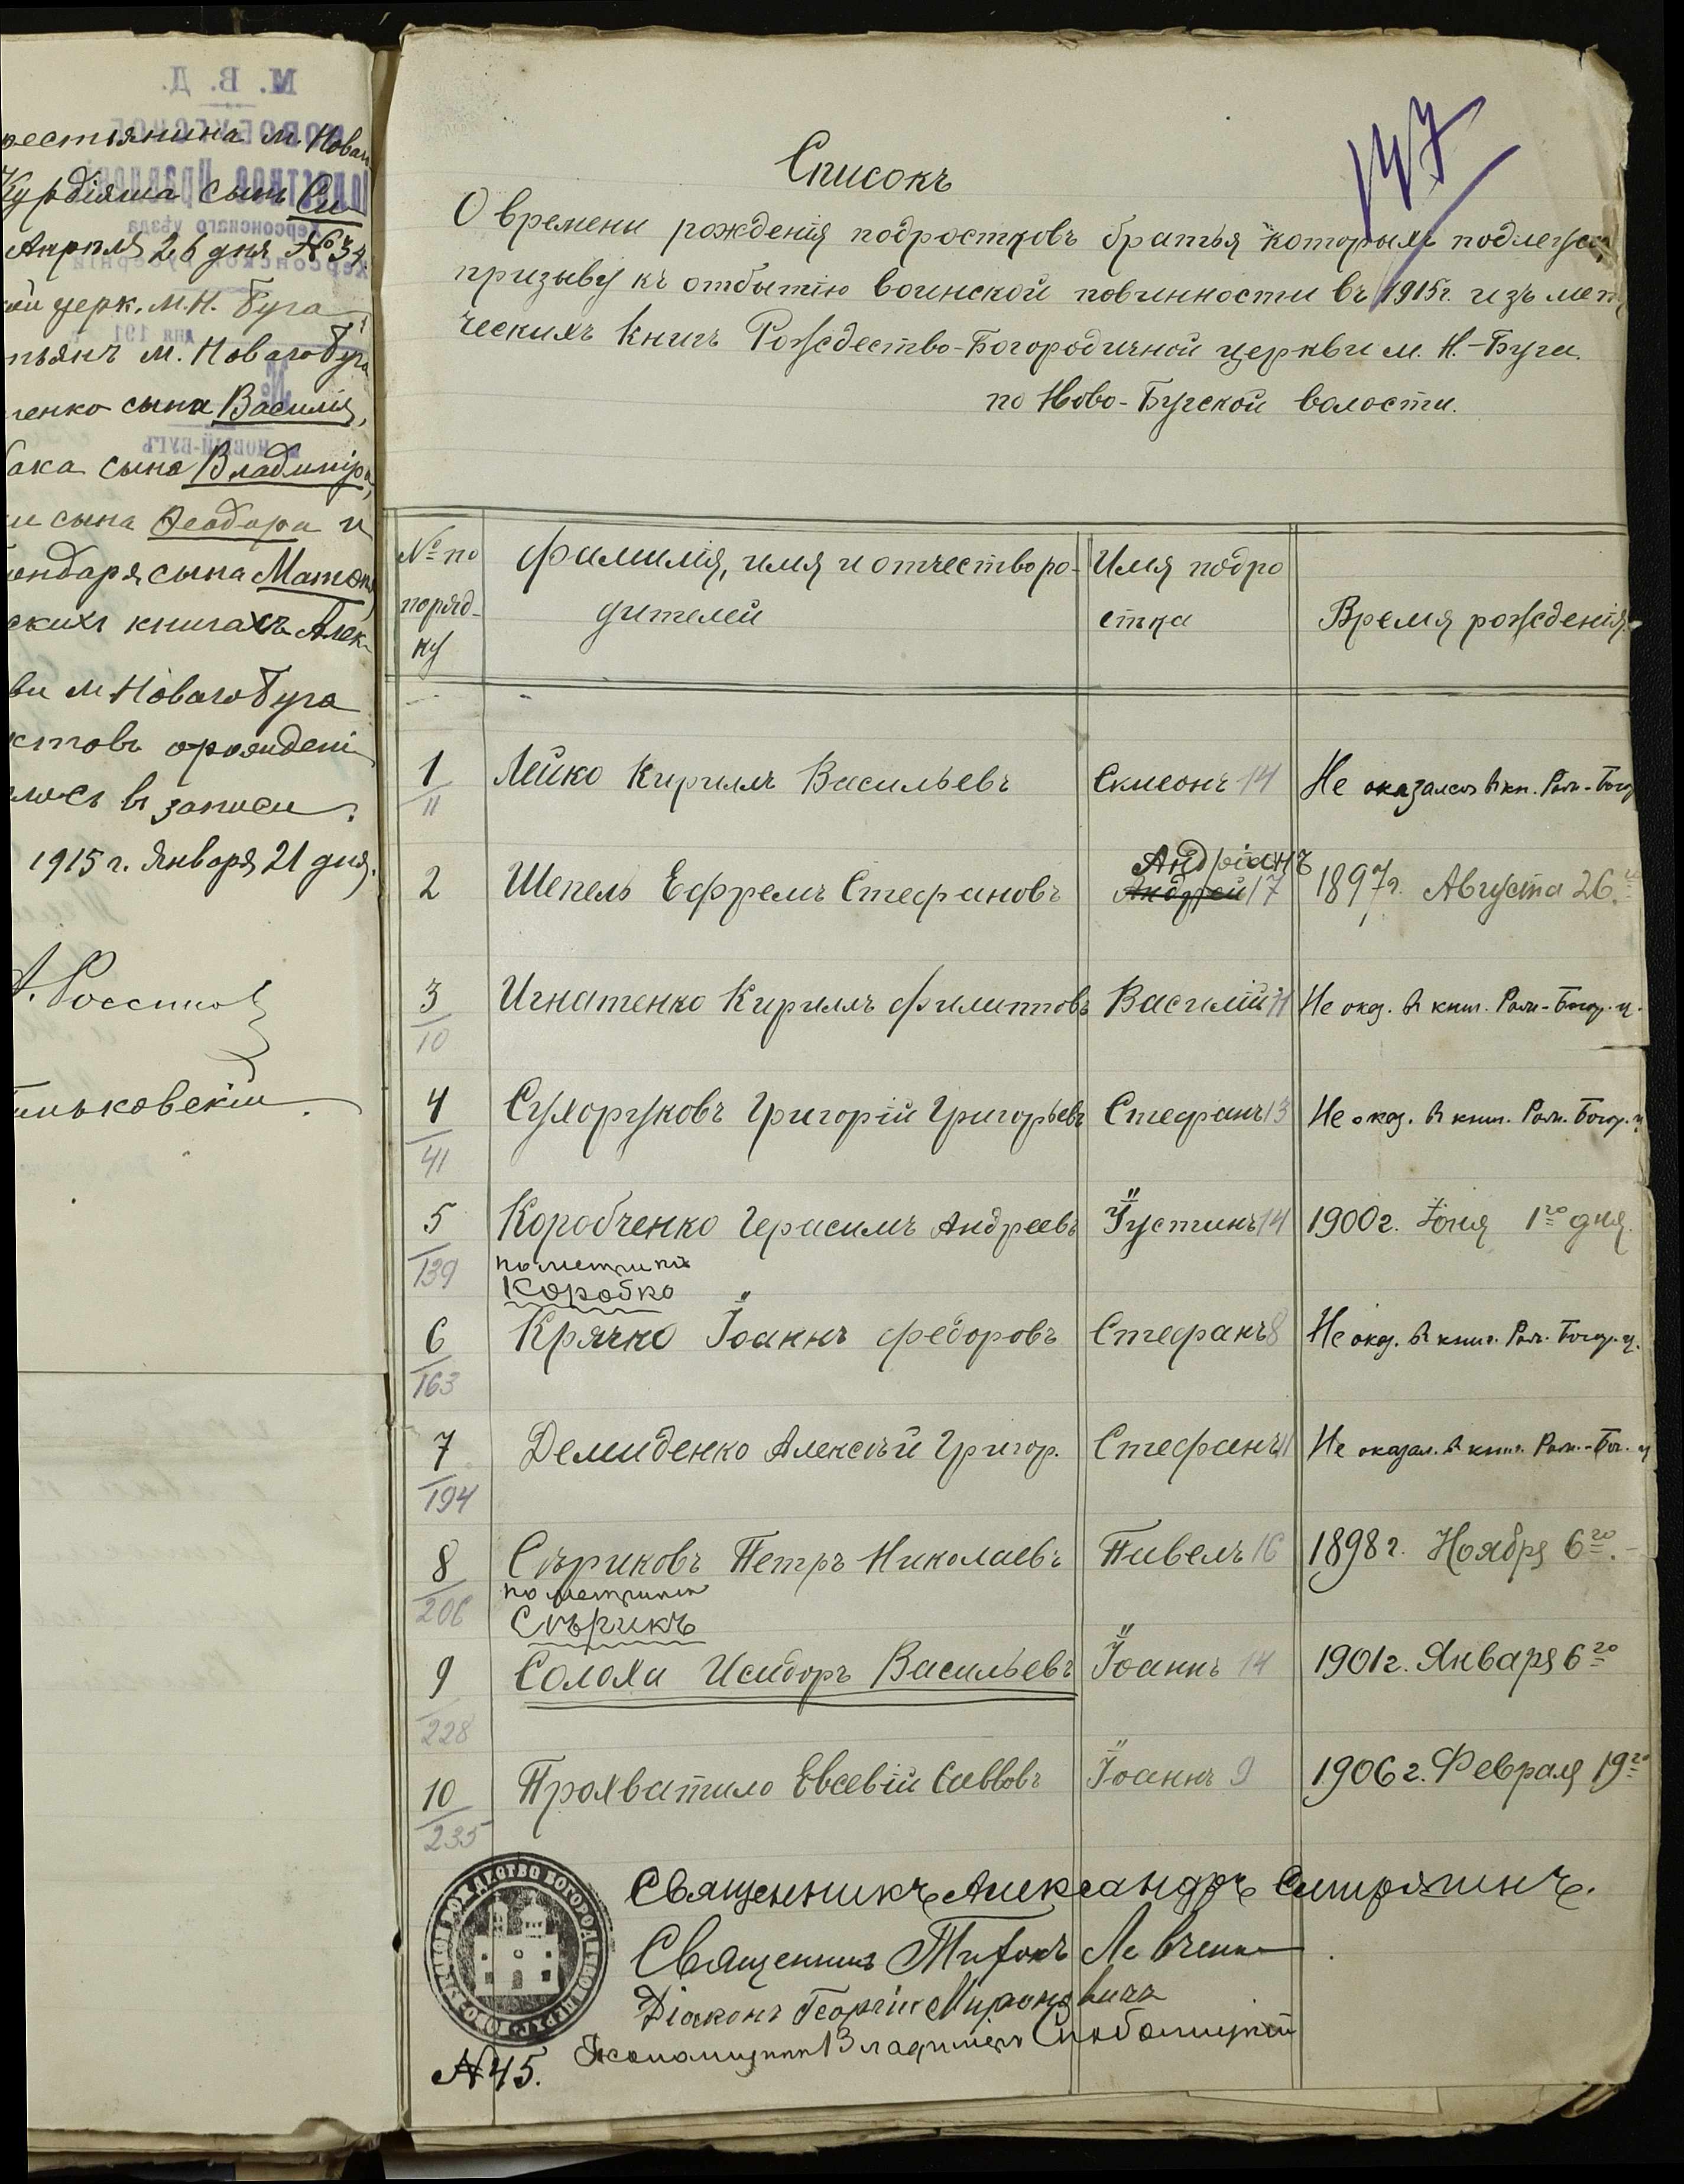 рестьянина м. Новаго
Курдіяша сынъ Си
Апрѣля 26 дня № 34
ой церк. м. Н. Буга
тьянъ м. Новаго Буга
ченко сына Василія,
бака сына Владиміра,
ки сына Ѳеодора и
ондаря сына Матѳ
скихъ книгахъ Алек-
ви м. Новаго Буга
кстовъ о рожденіи
лось въ записи.
1915 г. Января 21 дня.
147
Списокъ
О времени рожденія подростковъ братья которыхъ подлежа
призыву къ отбытію воинской повинности въ 1915 г. изъ мет
ческихъ книгъ Рождество-Богородичной церкви м. Н.-Буга.
по Ново-Бугской волости.
№ по поряд-ку
Фамилія, имя и отчество ро-дителей
Имя подро стка
Время рожденія.
1/11 Лейко Кириллъ Васильевъ Симеонъ 14 Не оказался въ кн. Рож-Богор
2 Шепель Ефремъ Стефановъ Андріанъ Андрей 17 1897 г. Августа 26.
3/10 Игнатенко Кириллъ Филипповъ Василій 11 Не оказ. въ книг. Рож-Богор. ц.
4/41 Сухоруковъ Григорій Григорьевъ Стефанъ 13 Не оказ. въ книг. Рож. Богор. ц.
5/139 Коробченко Герасимъ Андреевъ Іустинъ 14 1900 г. Іюня 1го дня.
по метрикѣ
Коробко
6/163 Крячко Іоаннъ Федоровъ Стефанъ 8 Не оказ. въ книг. Рож. Богор. ц.
7/194 Демиденко Алексѣй Григор. Стефанъ 11 Не оказал. въ книг. Рож.-Бог. ц
8/206 Сѣриковъ Петръ Николаевъ Павелъ 16 1898 г. Ноября 6го.
по метрикѣ
Сѣрикъ
9/228 Солоха Исидоръ Васильевъ Іоаннъ 14 1901 г. Января 6го
10/235 Прохватило Евсевій Саввовъ Іоаннъ 9 1906 г. Февраля 19го
Священникъ Александръ
Священникъ Тихонъ Левченко
Діаконъ Георгій Мироновичъ
Псаломщикъ Владиміръ
№ 45.